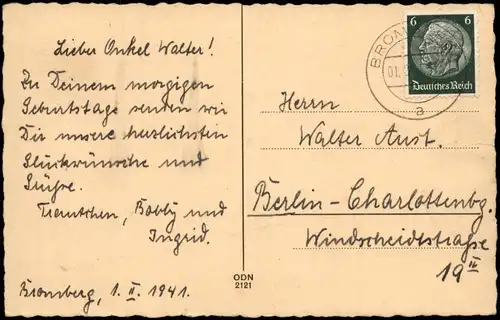 Lieber Onkel Walter!
Zu Deinem morgigen
Geburtstage senden wir
Dir unsere herzlichsten
Glückwünsche und
Grüße.
Trautchen, Bobby und
Ingrid.
Bromberg, 1. II. 1941.
ODN
2121
BROM
01.
a
6 6
Deutsches Reich
Herrn
Walter Aust.
Berlin-Charlottenbg.
Windscheidtstraße
19 II